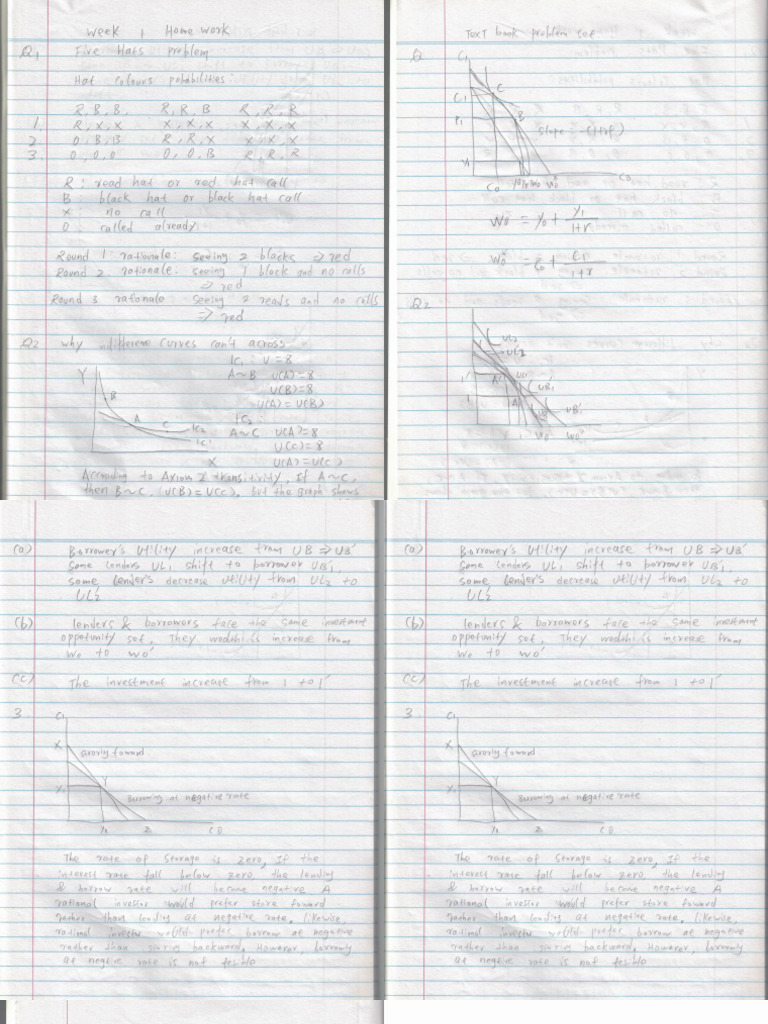 Week 1 Home work
Q1 Five Hats problem
Hat colours pobabilities:
R, B, B, R, R, B R, R, R
1. R, X, X X, X, X X, X, X
2 0, B, B R, R, X X, X, X
3. 0, 0, 0 0, 0, B R, R, R
R: read hat or red hat call
B: black hat or black hat call
X: no call
0: called already
Round 1: rationale: seeing 2 blacks ⇒ red
Round 2 rationale. seeing 1 black and no calls
⇒ red
Round 3 rationale: seeing 2 reads and no calls
⇒ red
Q2 why indifference curves can't across
IC1: U=8
Y A~B U(A)=8
B U(B)=8
U(A)=U(B)
A C IC2:
IC2 A~C U(A)=8
IC1 U(C)=8
X U(A)=U(C)
According to Axiom 2 transitivity, If A~C,
then B~C, (U(B)=U(C), but the graph shows
Text book problem set
Q
C1
C
C1
B
P1
slope = -(1+r)
Y1
C0 Y0 P0 W0 W0* C0
W0* = y0 + y1/1+r
W0* = C0 + C1/1+r
Q2
UL2
UL2'
UL1
1' A' UB1'
1 A UB'
W0 W0'
(a) Borrower's Utility increase from UB ⇒ UB'
Some lenders UL1 shift to borrower UB1,
some lender's decrease utility from UL2 to
UL2'
(b) lenders & borrowers face the same investment
oppotunity set, They wedahl is increase from
W0 to W0'
(c) The investment increase from 1 to 1'
3. C1
X
storly foward
Y
Y1 Borrowing at negative rate
Y0 Z C0
The rate of storage is zero, If the
interest rate fall below zero, the lending
& borrow rate will become negative A
rational investor would prefer store foward
rather than lending at negative rate, likewise,
rational investor would prefer borrow at negative
rather than storing backward, However, borrowing
at negtive rate is not fesible
(a) Borrower's Utility increase from UB ⇒ UB'
Some lenders UL1 shift to borrower UB1,
some lender's decrease utility from UL2 to
UL2'
(b) lenders & borrowers face the same investment
oppotunity set, They wedahl is increase from
W0 to W0'
(c) The investment increase from 1 to 1'
3. C1
X
storly foward
Y
Y1 Borrowing at negative rate
Y0 Z C0
The rate of storage is zero, If the
interest rate fall below zero, the lending
& borrow rate will become negative A
rational investor would prefer store foward
rather than lending at negative rate, likewise,
rational investor would prefer borrow at negative
rather than storing backward, However, borrowing
at negtive rate is not fesible